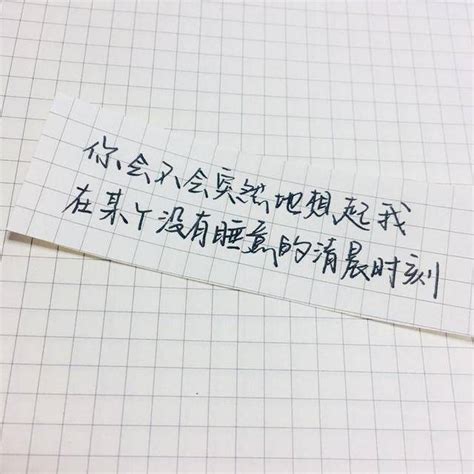 你会不会突然地想起我
在某个没有睡意的清晨时刻